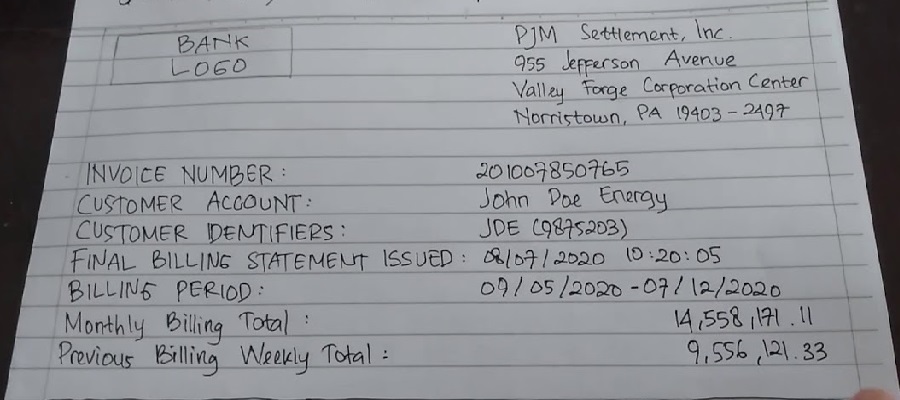 BANK
LOGO
PJM Settlement, Inc.
955 Jefferson Avenue
Valley Forge Corporation Center
Norristown, PA 19403-2497
INVOICE NUMBER: 201007850765
CUSTOMER ACCOUNT: John Doe Energy
CUSTOMER IDENTIFIERS: JDE (9875203)
FINAL BILLING STATEMENT ISSUED: 08/07/2020 10:20:05
BILLING PERIOD: 09/05/2020-07/12/2020
Monthly Billing Total: 14,558,171.11
Previous Billing Weekly Total: 9,556,121.33